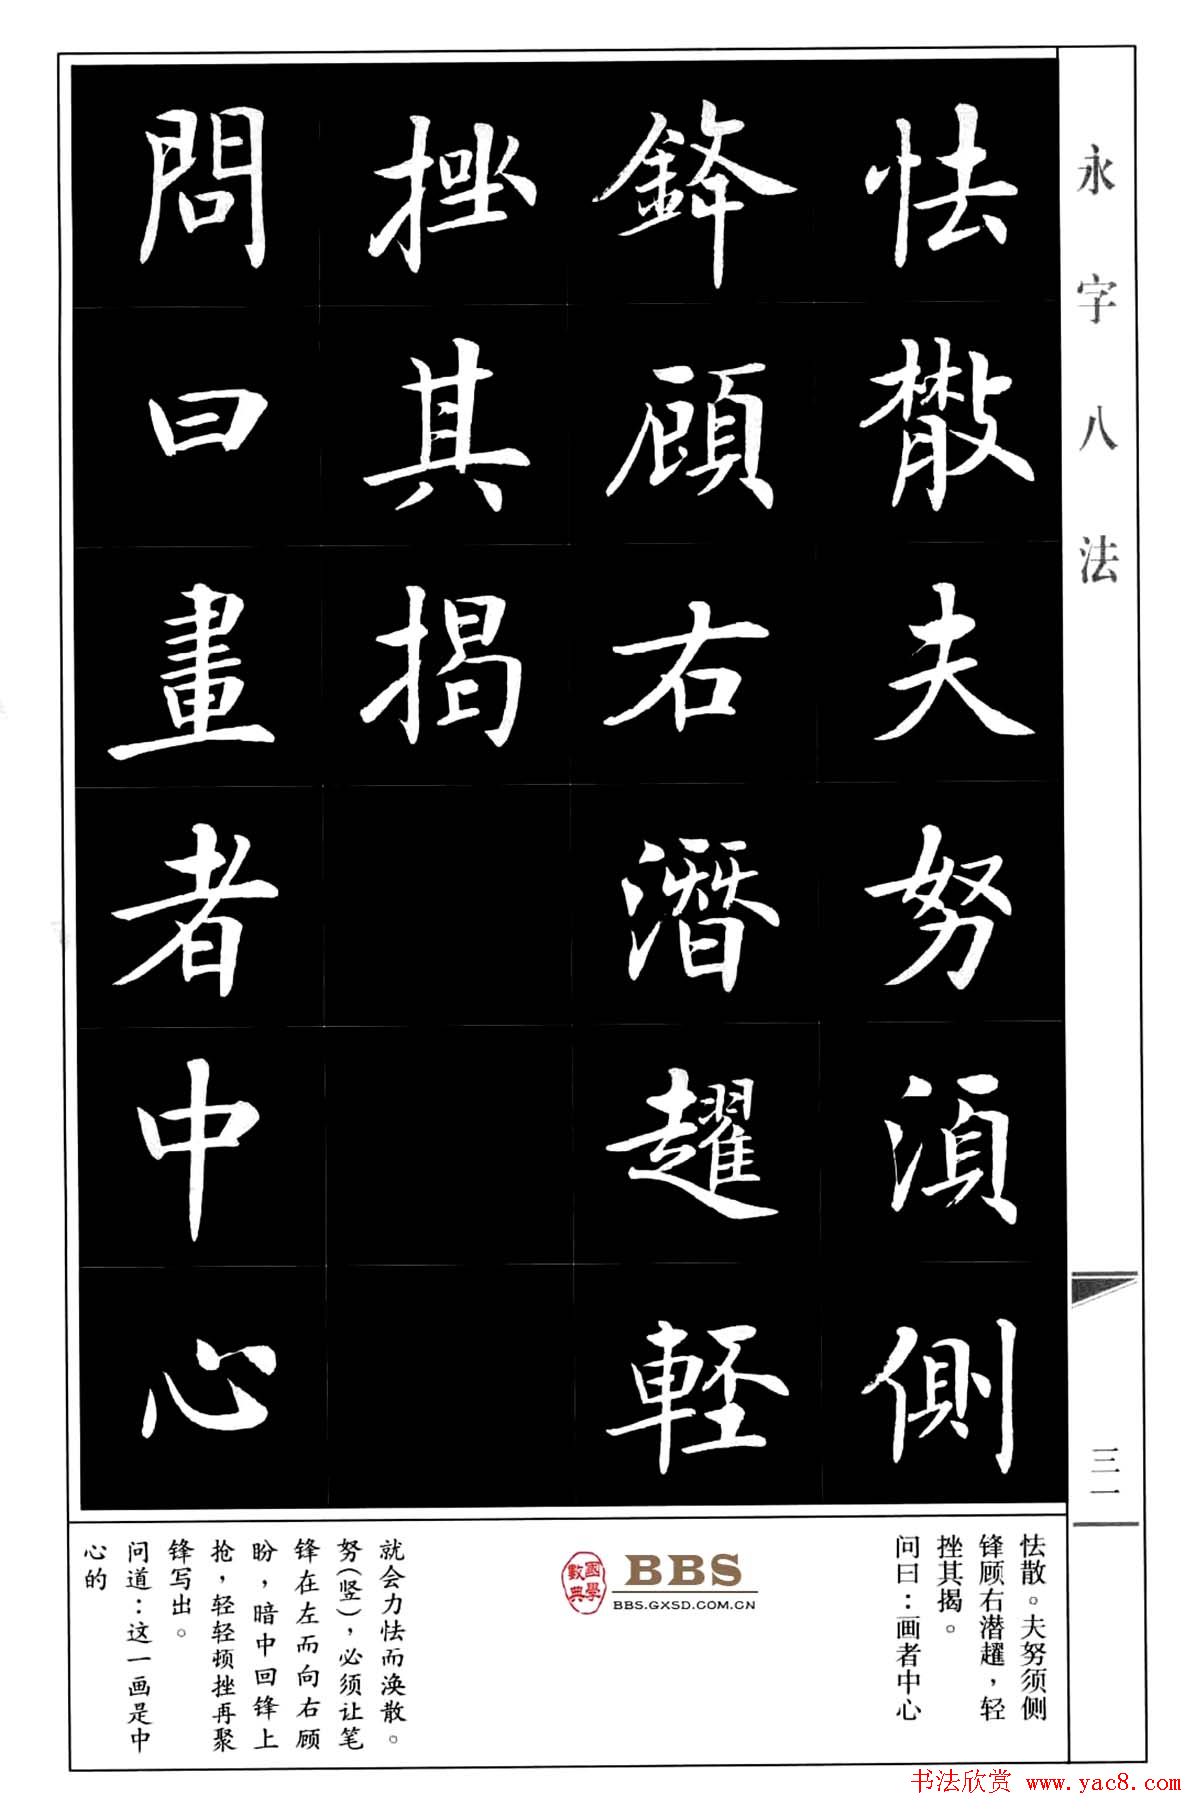 永字八法
三一
怯散夫努須側
鋒顧右潛趯輕
挫其揭
問曰畫者中心
怯散。夫努须侧
锋顾右潜趯，轻
挫其揭。
问曰：画者中心
BBS
BBS.GXSD.COM.CN
國學
數典
就会力怯而涣散。
努(竖)，必须让笔
锋在左而向右顾
盼，暗中回锋上
抢，轻轻顿挫再聚
锋写出。
问道：这一画是中
心的
书法欣赏 www.yac8.com